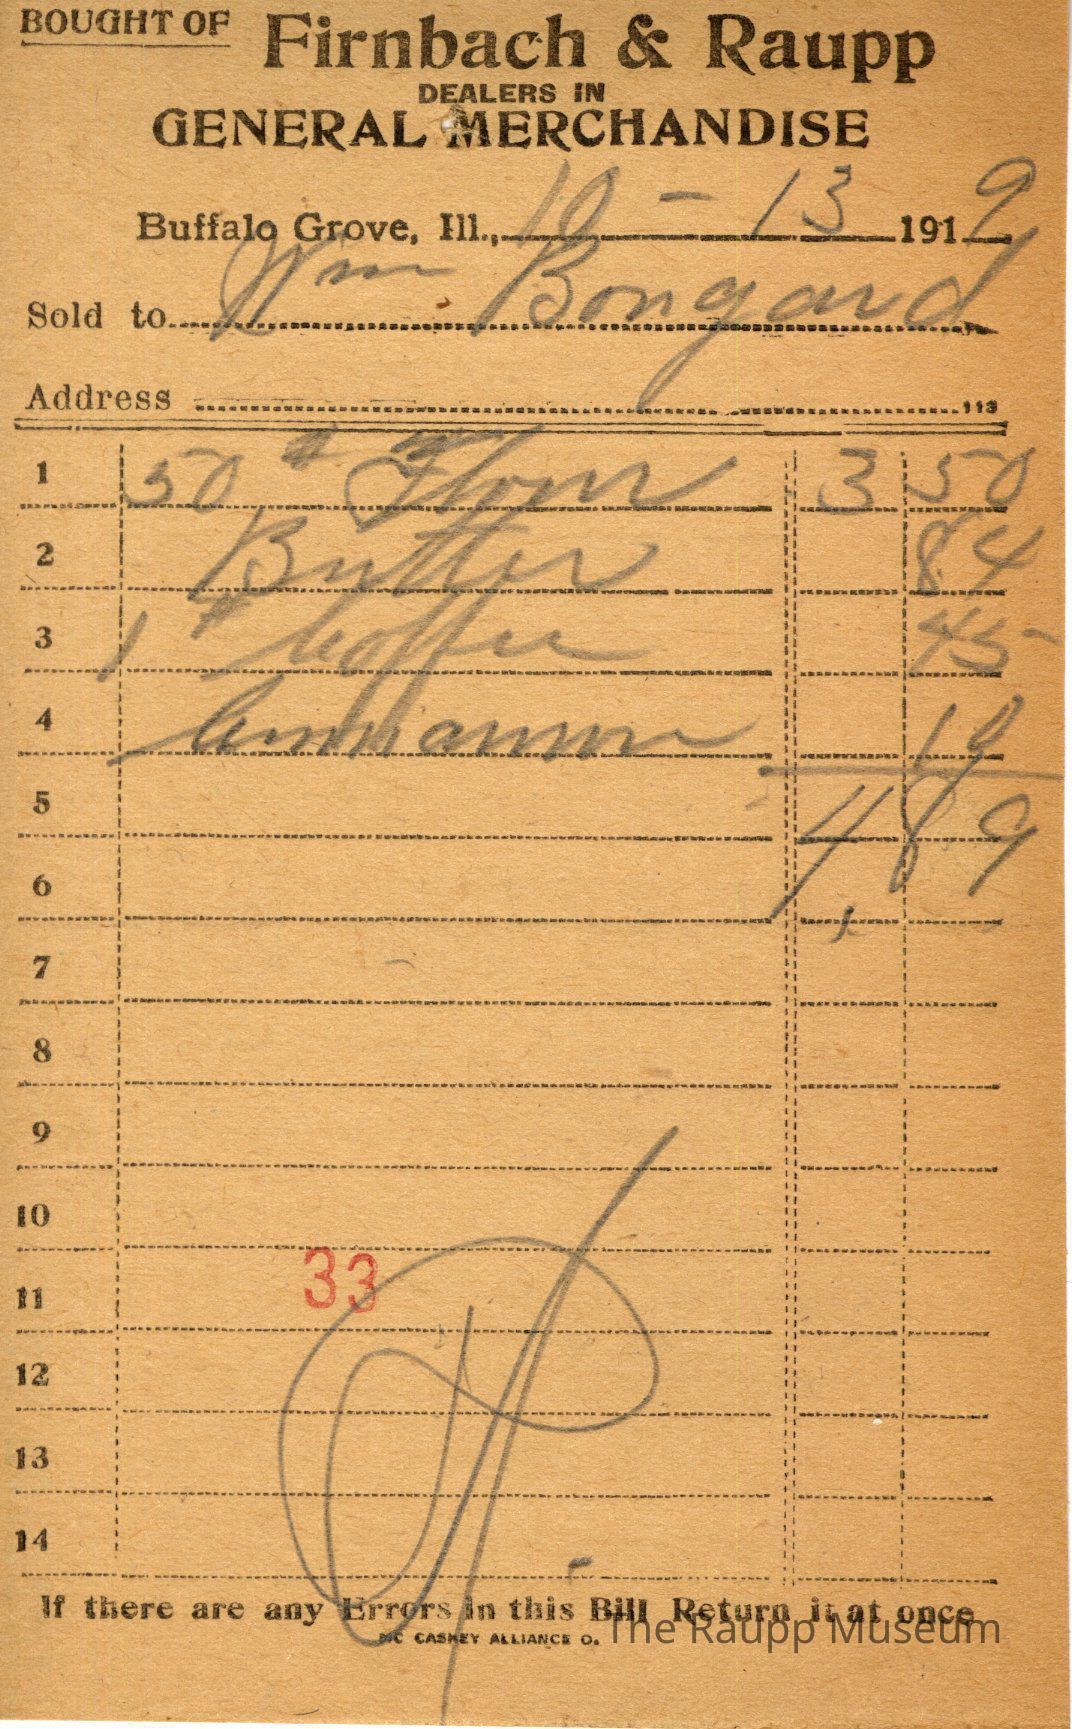 BOUGHT OF Firnbach & Raupp
DEALERS IN
GENERAL MERCHANDISE
Buffalo Grove, Ill., 10 - 13 1919
Sold to Wm Bongard
Address 113
1 50 # Flour 3 50
2 Butter 84
3 1 # Coffee 45
4 Cinnamon 10
5 4 89
6
7
8
9
10
33
11
12
13
14
If there are any Errors in this Bill Return it at once
MC CASKEY ALLIANCE O.
The Raupp Museum